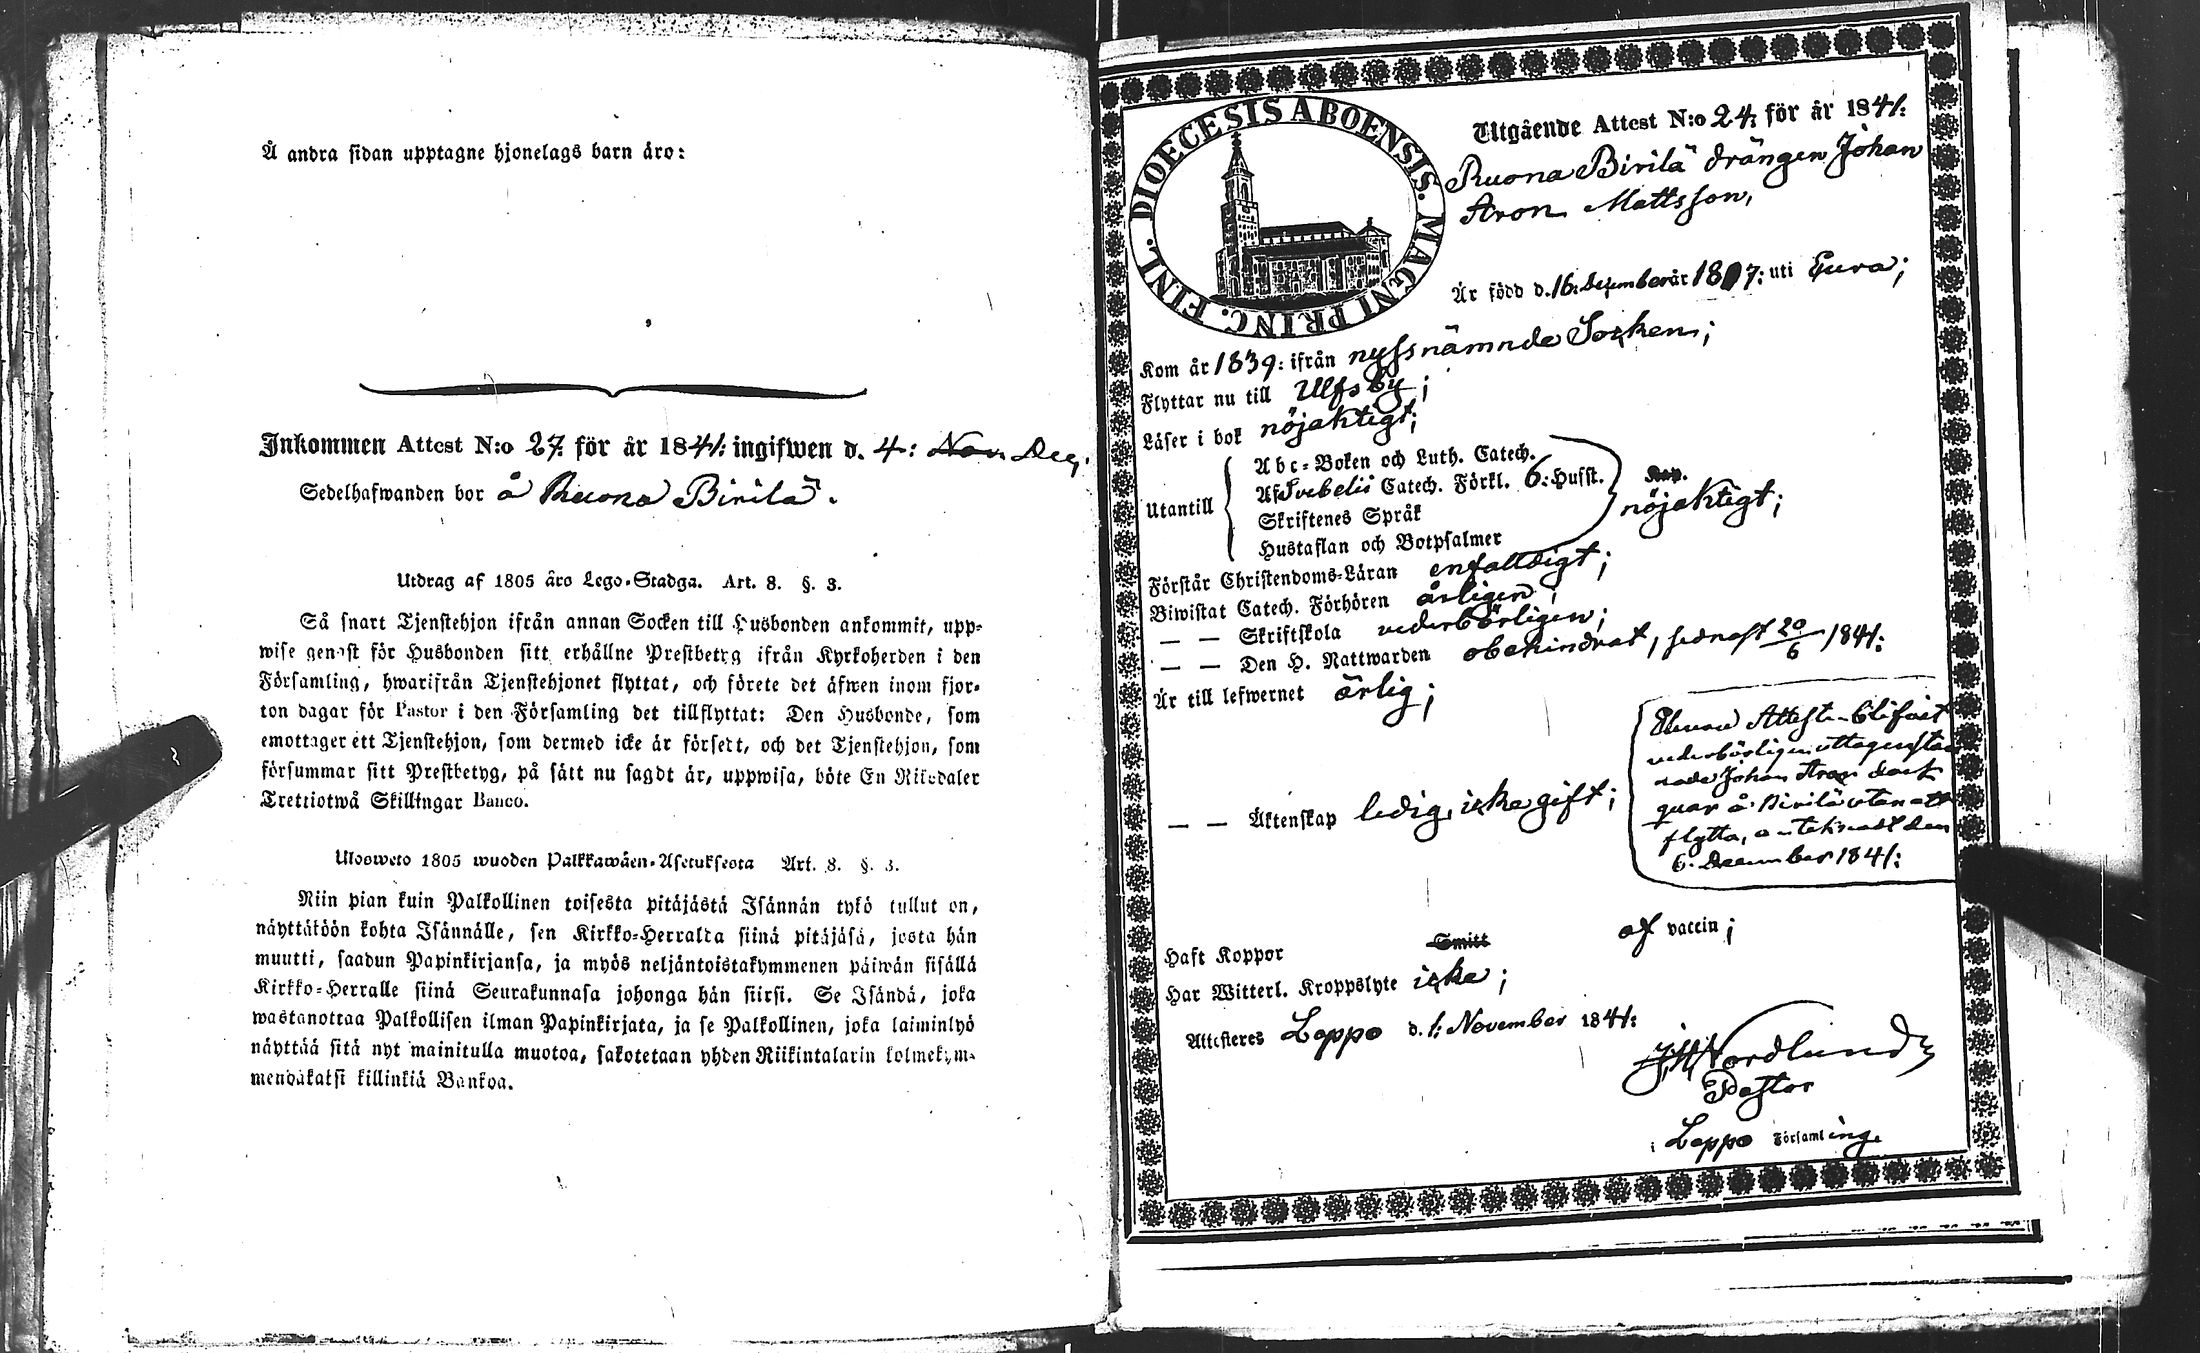 Å andra sidan upptagne hjonelags barn äro:
Inkommen Attest N:o 27: för år 1841: ingifwen d. 4: Nov. Dec.
Sedelhafwanden bor å Ruona Birilä.
Utdrag af 1805 års Lego-Stadga. Art. 8. §. 3.
Så snart Tjenstehjon ifrån annan Socken till Husbonden ankommit, upp-
wise genast för Husbonden sitt erhållne Prestbetyg ifrån Kyrkoherden i den
Församling, hwarifrån Tjenstehjonet flyttat, och förete det äfwen inom fjor-
ton dagar för Pastor i den Församling det tillflyttat: Den Husbonde, som
emottager ett Tjenstehjon, som dermed icke är försedt, och det Tjenstehjon, som
försummar sitt Prestbetyg, på sätt nu sagdt är, uppwisa, böte En Riksdaler
Trettiotwå Skillingar Banco.
Ulosweto 1805 wuoden Palkkawäen-Asetuksesta Art. 8. §. 3.
Niin pian kuin Palkollinen toisesta pitäjästä Isännän tykö tullut on,
näyttäköön kohta Isännälle, sen Kirkko-Herralta siinä pitäjäsä, josta hän
muutti, saadun Papinkirjansa, ja myös neljäntoistakymmenen päiwän sisällä
Kirkko-Herralle siinä Seurakunnasa johonga hän siirsi. Se Isändä, joka
wastanottaa Palkollisen ilman Papinkirjata, ja se Palkollinen, joka laiminlyö
näyttää sitä nyt mainitulla muotoa, sakotetaan yhden Riikintalarin kolmekym-
mendäkaksi killinkiä Bankoa.
DIOECESIS ABOENSIS. MAGNI PRINC. FINL.
Utgående Attest N:o 24: för år 1841:
Ruona Birilä drängen Johan
Aron Mattsson,
Är född d. 16: December år 1817: uti Eura;
Kom år 1839: ifrån nyssnämnde Socken;
Flyttar nu till Ulfsby;
Läser i bok nöjaktigt;
Utantill
Abc-Boken och Luth. Catech.
Af Svebelii Catech. Förkl. 6: Hufst.
Skriftenes Språk
Hustaflan och Botpsalmer
nöjaktigt;
Förstår Christendoms-Läran enfalldigt;
Biwistat Catech. Förhören årligen;
— — Skriftskola vederbörligen;
— — Den H. Nattwarden obehindrat, sednast 20/6 1841:
Är till lefwernet ärlig;
— — Äktenskap ledig, icke gift;
Denna Attest blifvit
vederbörligen uttagen, stan-
nade Johan Aron dock
qvar å Birilä utan att
flytta, antecknadt den
6: December 1841:
Haft Koppor Smitt af vaccin;
Har Witterl. Kroppslyte icke;
Attesteres Loppo d. 1: November 1841:
Nordlund
Pastor
i Loppo Församling.